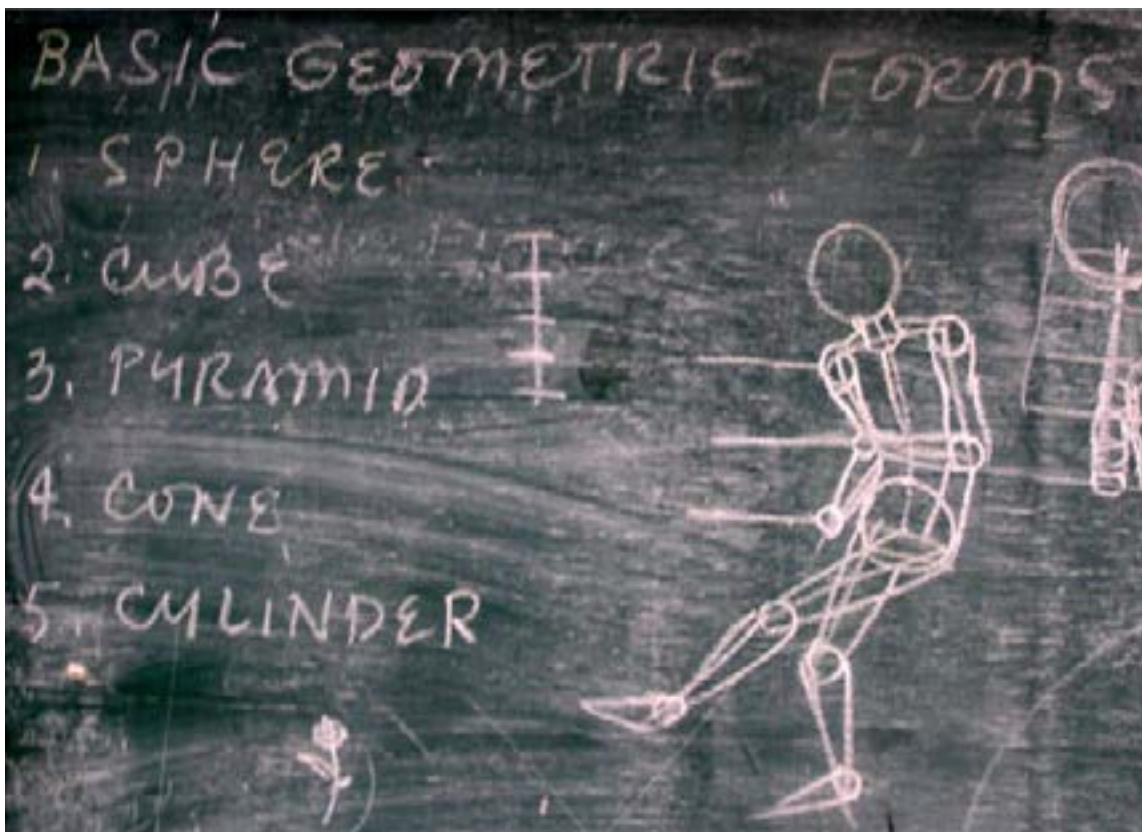 BASIC GEOMETRIC FORMS
1. SPHERE
2. CUBE
3. PYRAMID
4. CONE
5. CYLINDER